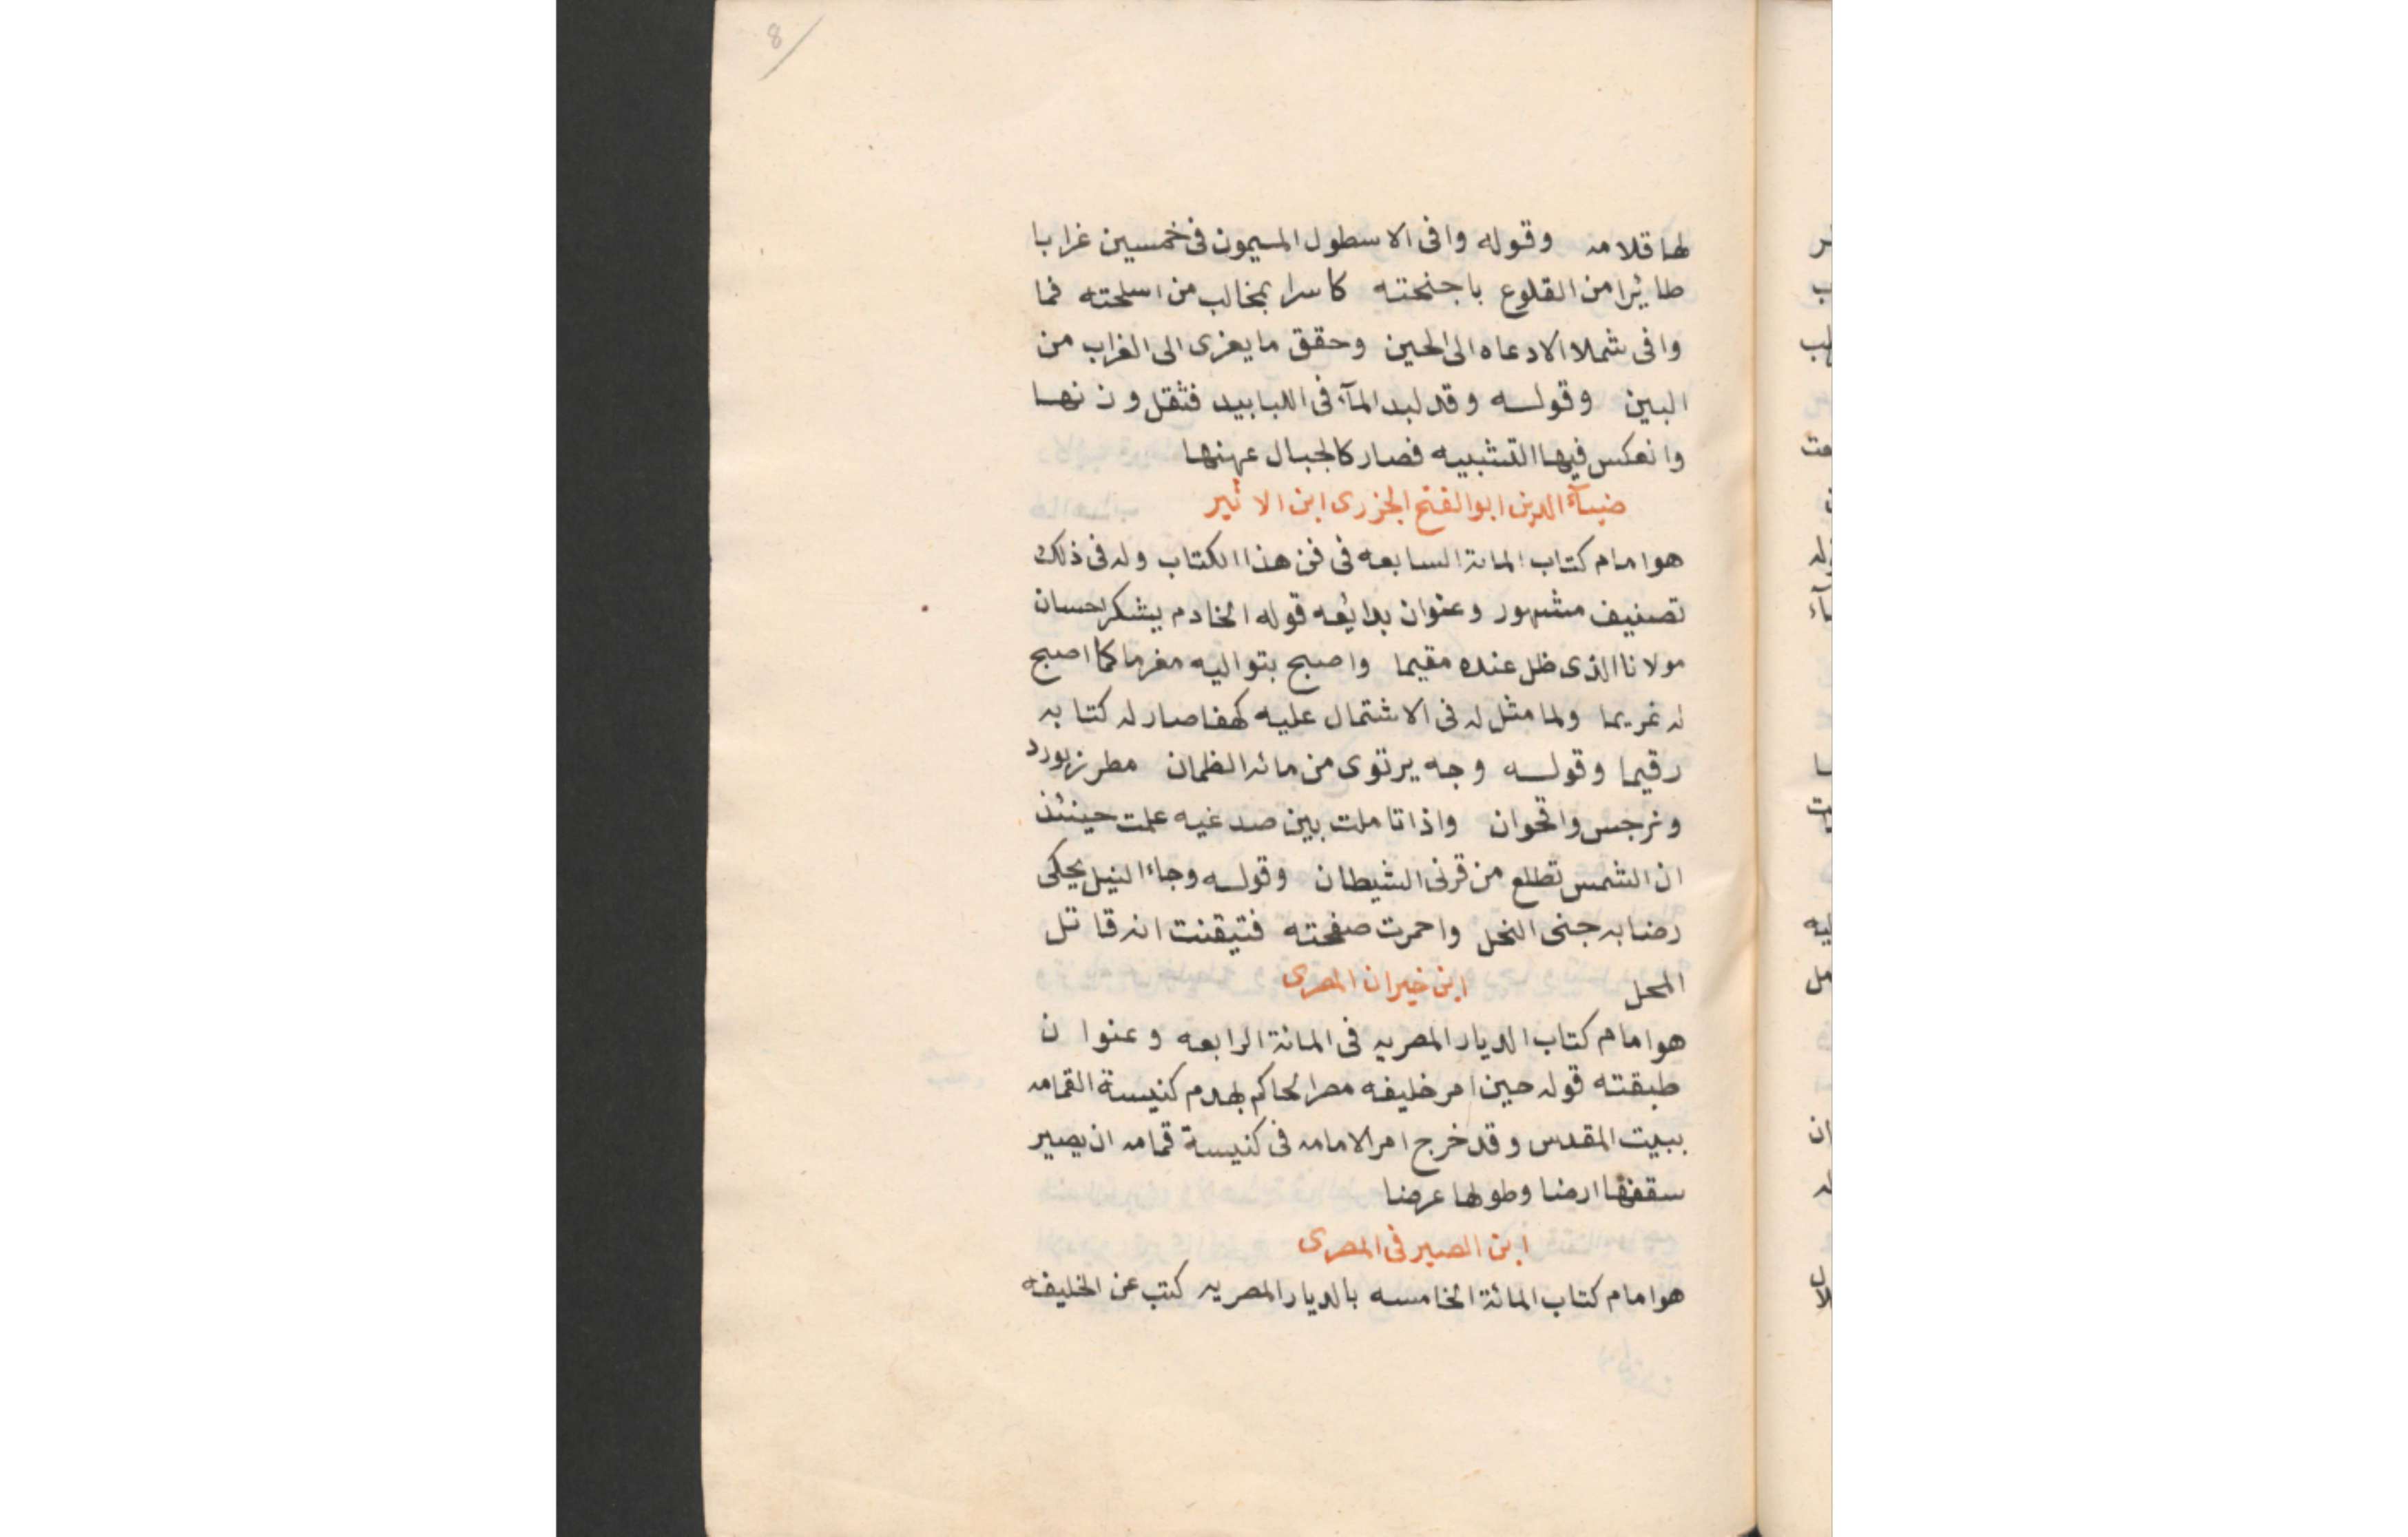 8
لها قلامه وقوله وافى الاسطول الميمون فى خمسين غرابا
طائرا من القلوع باجنحته كاسرا بمخالب من اسلحته فما
وافى شملا الا دعاه الى الحين وحقق ما يعزى الى الغراب من
البين وقوله وقد لبد المآء فى اللبابيد فثقل وزنها
وانعكس فيها التشبيه فصار كالجبال عهنها
ضيآء الدين ابو الفتح الجزرى ابن الاثير
هو امام كتاب المائة السابعه فى فن هذا الكتاب وله فى ذلك
تصنيف مشهور وعنوان بدائعه قوله الخادم يشكر احسان
مولانا الذى ظل عنده مقيما واصبح بتواليه مغرما كما اصبح
له غريما ولما مثل له فى الاشتمال عليه كهفا صار له كتابه
رقيما وقوله وجه يرتوى من مائه الظمان مطرز بورد
ونرجس واقحوان واذا تاملت بين صدغيه علمت حينئذ
ان الشمس تطلع من قرنى الشيطان وقوله وجاء النيل يحكى
رضابه جنى النحل واحمرت صفحته فتيقنت انه قاتل
المحل ابن خيران المصرى
هو امام كتاب الديار المصريه فى المائة الرابعه وعنوان
طبقته قوله حين امر خليفه مصر الحاكم بهدم كنيسة القمامه
ببيت المقدس وقد خرج امر الامامه فى كنيسة قمامه ان يصير
سقفها ارضا وطولها عرضا
ابن الصيرفى المصرى
هو امام كتاب المائة الخامسه بالديار المصريه كتب عن الخليفه